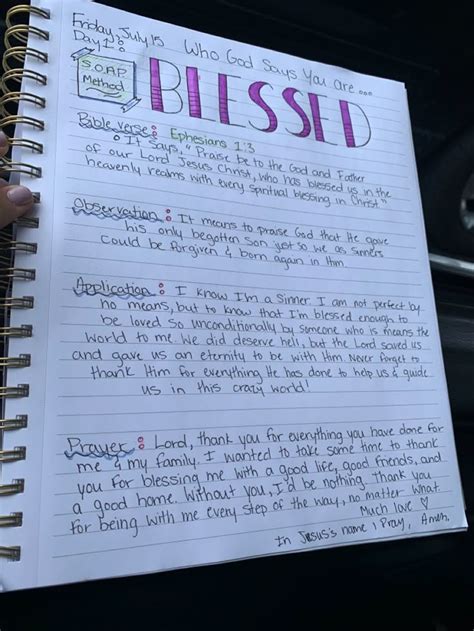 Friday, July 15
Day 1:
Who God Says You are...
S.O.A.P.
Method
BLESSED
Bible verse: Ephesians 1:3
• It says, "Praise be to the God and Father
of our Lord Jesus Christ, who has blessed us in the
heavenly realms with every spiritual blessing in Christ"
Observation: It means to praise God that He gave
his only begotten Son just so we as sinners
could be forgiven & born again in Him
Application: I know I'm a Sinner. I am not perfect by
no means, but to know that I'm blessed enough to
be loved so unconditionally by someone who is means the
world to me. We did deserve hell, but the Lord saved us
and gave us an eternity to be with Him. Never forget to
thank Him for everything He has done to help us & guide
us in this crazy world!
Prayer: Lord, thank you for everything you have done for
me & my family. I wanted to take some time to thank
you for blessing me with a good life, good friends, and
a good home. Without you, I'd be nothing. Thank you
for being with me every step of the way, no matter what.
Much love ♡
In Jesus's name, I Pray, Amen.